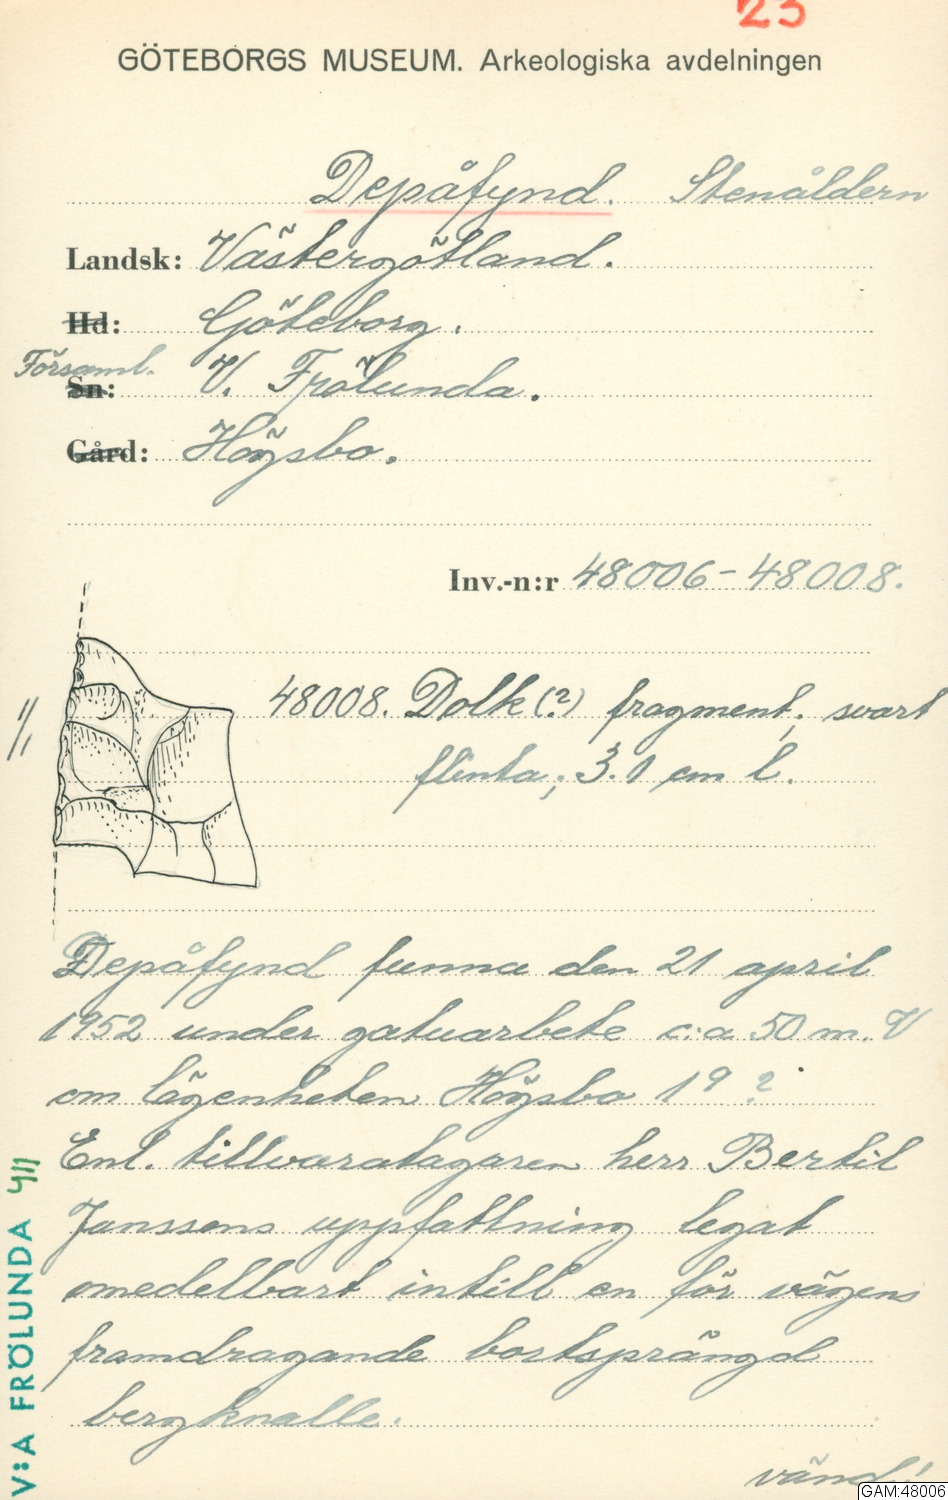 23
GÖTEBORGS MUSEUM. Arkeologiska avdelningen
Depåfynd. Stenåldern
Landsk: Västergötland.
Hd: Göteborg.
Församl.
Sn: V. Frölunda.
Gård: Högsbo.
Inv.-n:r 48006-48008.
1/1
48008. Dolk(?) fragment, svart
flinta; 3.1 cm l.
Depåfynd funna den 21 april
1952 under gatuarbete c:a 50 m. V
om lägenheten Högsbo 19 ?
Enl. tillvaratagaren herr Bertil
Janssons uppfattning legat
omedelbart intill en för vägens
framdragande bortsprängd
bergknalle.
vänd!
V:A FRÖLUNDA 411
GAM:48006